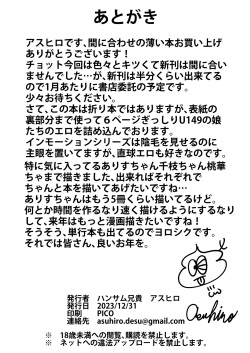 あとがき
アスヒロです、間に合わせの薄い本お買い上げ
ありがとうございます！
チョット今回は色々とキツくて新刊は間に合い
ませんでした…が、新刊は半分くらい出来てる
ので1月あたりに書店委託の予定です。
少々お待ちください。
さて、この本は折り本ではありますが、表紙の
裏部分まで使って６ページぎっしりU149の娘
たちのエロを詰め込んでおります。
インモーションシリーズは陰毛を見せるのに
主眼を置いてますが、直球エロも好きなのです。
特に気に入ってるありすちゃん千枝ちゃん桃華
ちゃまで描きました、出来ればそれぞれで
ちゃんと本を描いてあげたいですね…
ありすちゃんはもう5冊くらい描いてるけど。
何とか時間を作るなり速く描けるようにするなり
して、来年はもっと漫画描きたいですね！
そうそう、単行本も出てるのでヨロシクです。
それでは皆さん、良いお年を。
発行者 ハンサム兄貴 アスヒロ
発行日 2023/12/31
印刷 PICO
連絡先 asuhiro.desu@gmail.com
Asuhiro
※ 18歳未満への閲覧、購読を禁止します。
※ ネットへの違法アップロードを禁止します。